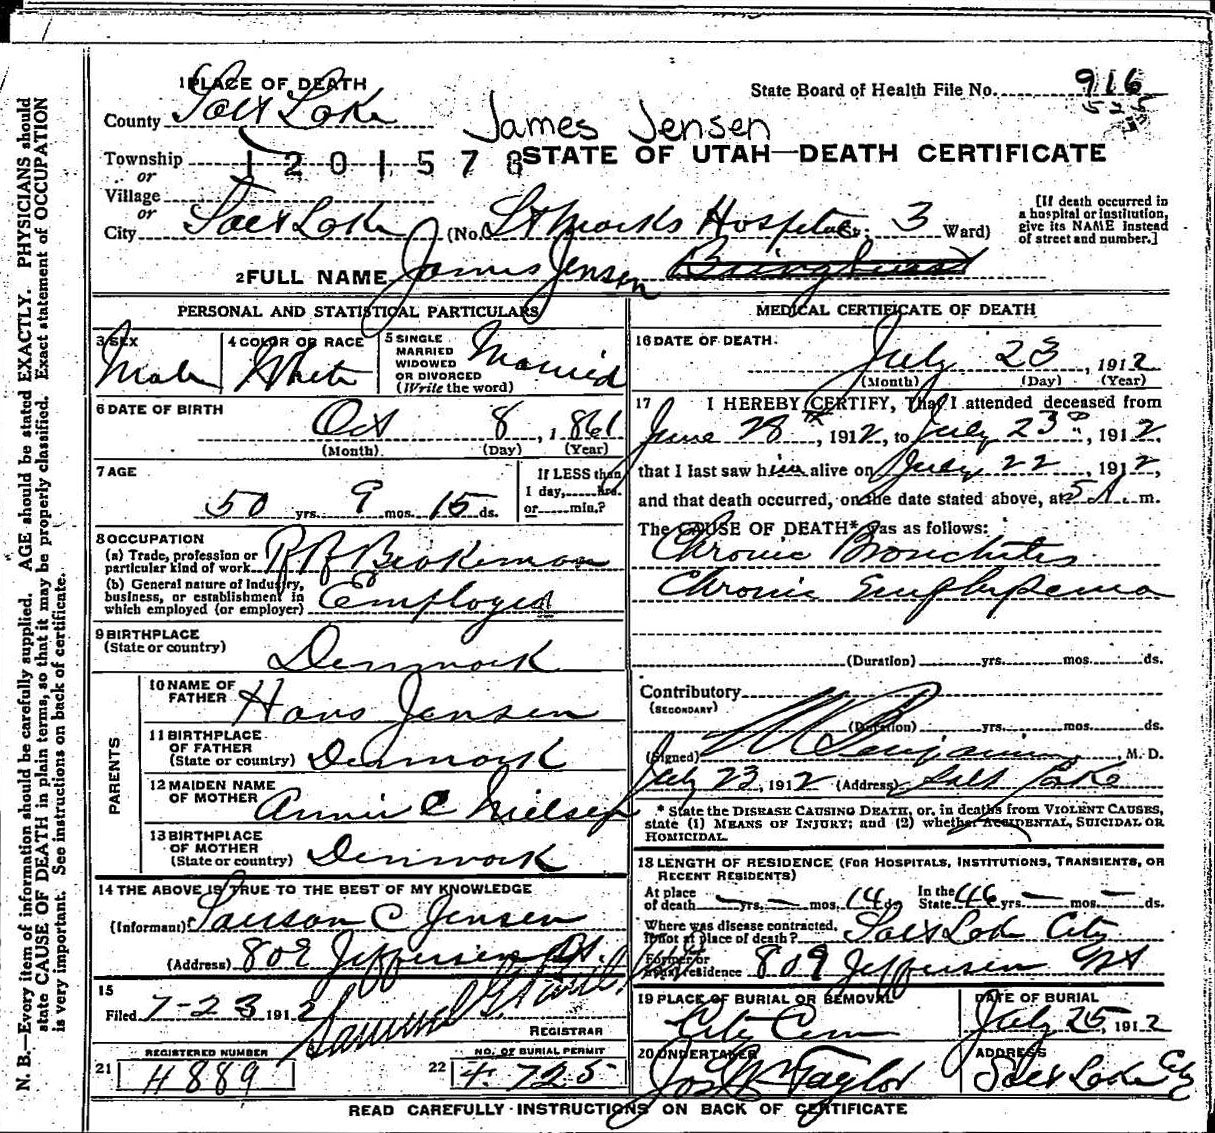 1 PLACE OF DEATH
State Board of Health File No. 916
525
County Salt Lake
James Jensen
Township 1201578 STATE OF UTAH—DEATH CERTIFICATE
or
Village
or
City Salt Lake (No. St Marks Hospital; 3 Ward)
[If death occurred in a hospital or institution, give its NAME instead of street and number.]
2 FULL NAME James Jensen
PERSONAL AND STATISTICAL PARTICULARS
3 SEX Male
4 COLOR OR RACE White
5 SINGLE MARRIED WIDOWED OR DIVORCED (Write the word) Married
6 DATE OF BIRTH
Oct 8, 1861
(Month) (Day) (Year)
7 AGE
50 yrs. 9 mos. 15 ds.
If LESS than 1 day, hrs. or min.?
8 OCCUPATION
(a) Trade, profession or particular kind of work RR Brakeman
(b) General nature of Industry, business, or establishment in which employed (or employer) Employed
9 BIRTHPLACE
(State or country) Denmark
PARENTS
10 NAME OF FATHER Hans Jensen
11 BIRTHPLACE OF FATHER (State or country) Denmark
12 MAIDEN NAME OF MOTHER Annie C Nielsen
13 BIRTHPLACE OF MOTHER (State or country) Denmark
14 THE ABOVE IS TRUE TO THE BEST OF MY KNOWLEDGE
(Informant) C Jensen
(Address) 809 Jefferson St.
15
Filed 7-23 1912
REGISTRAR
REGISTERED NUMBER
21 H889
NO. OF BURIAL PERMIT
22 4725
MEDICAL CERTIFICATE OF DEATH
16 DATE OF DEATH.
July 23, 1912
(Month) (Day) (Year)
17 I HEREBY CERTIFY, That I attended deceased from
June 28th, 1912, to July 23d, 1912,
that I last saw him alive on July 22, 1912,
and that death occurred, on the date stated above, at 5 A. m.
The CAUSE OF DEATH* was as follows:
Chronic Bronchitis
Chronic Emphysema
(Duration) yrs. mos. ds.
Contributory
(SECONDARY)
(Duration) yrs. mos. ds.
(Signed) Benjamin M. D.
July 23, 1912 (Address) Salt Lake
* State the DISEASE CAUSING DEATH, or, in deaths from VIOLENT CAUSES, state (1) MEANS OF INJURY; and (2) whether ACCIDENTAL, SUICIDAL OR HOMICIDAL.
18 LENGTH OF RESIDENCE (FOR HOSPITALS, INSTITUTIONS, TRANSIENTS, OR RECENT RESIDENTS)
At place of death — yrs. — mos. 14 ds. In the State 46 yrs — mos. — ds.
Where was disease contracted, If not at place of death? Salt Lake City
Former or usual residence 809 Jefferson St
19 PLACE OF BURIAL OR REMOVAL
City Cem
DATE OF BURIAL
July 25, 1912
20 UNDERTAKER
Jos Wm Taylor
ADDRESS
Salt Lake City
READ CAREFULLY INSTRUCTIONS ON BACK OF CERTIFICATE
N. B.—Every item of information should be carefully supplied. AGE should be stated EXACTLY. PHYSICIANS should
state CAUSE OF DEATH in plain terms, so that it may be properly classified. Exact statement of OCCUPATION
is very important. See instructions on back of certificate.